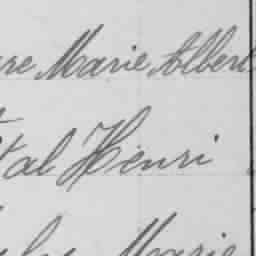 re Marie Albert
tal Henri
Marie